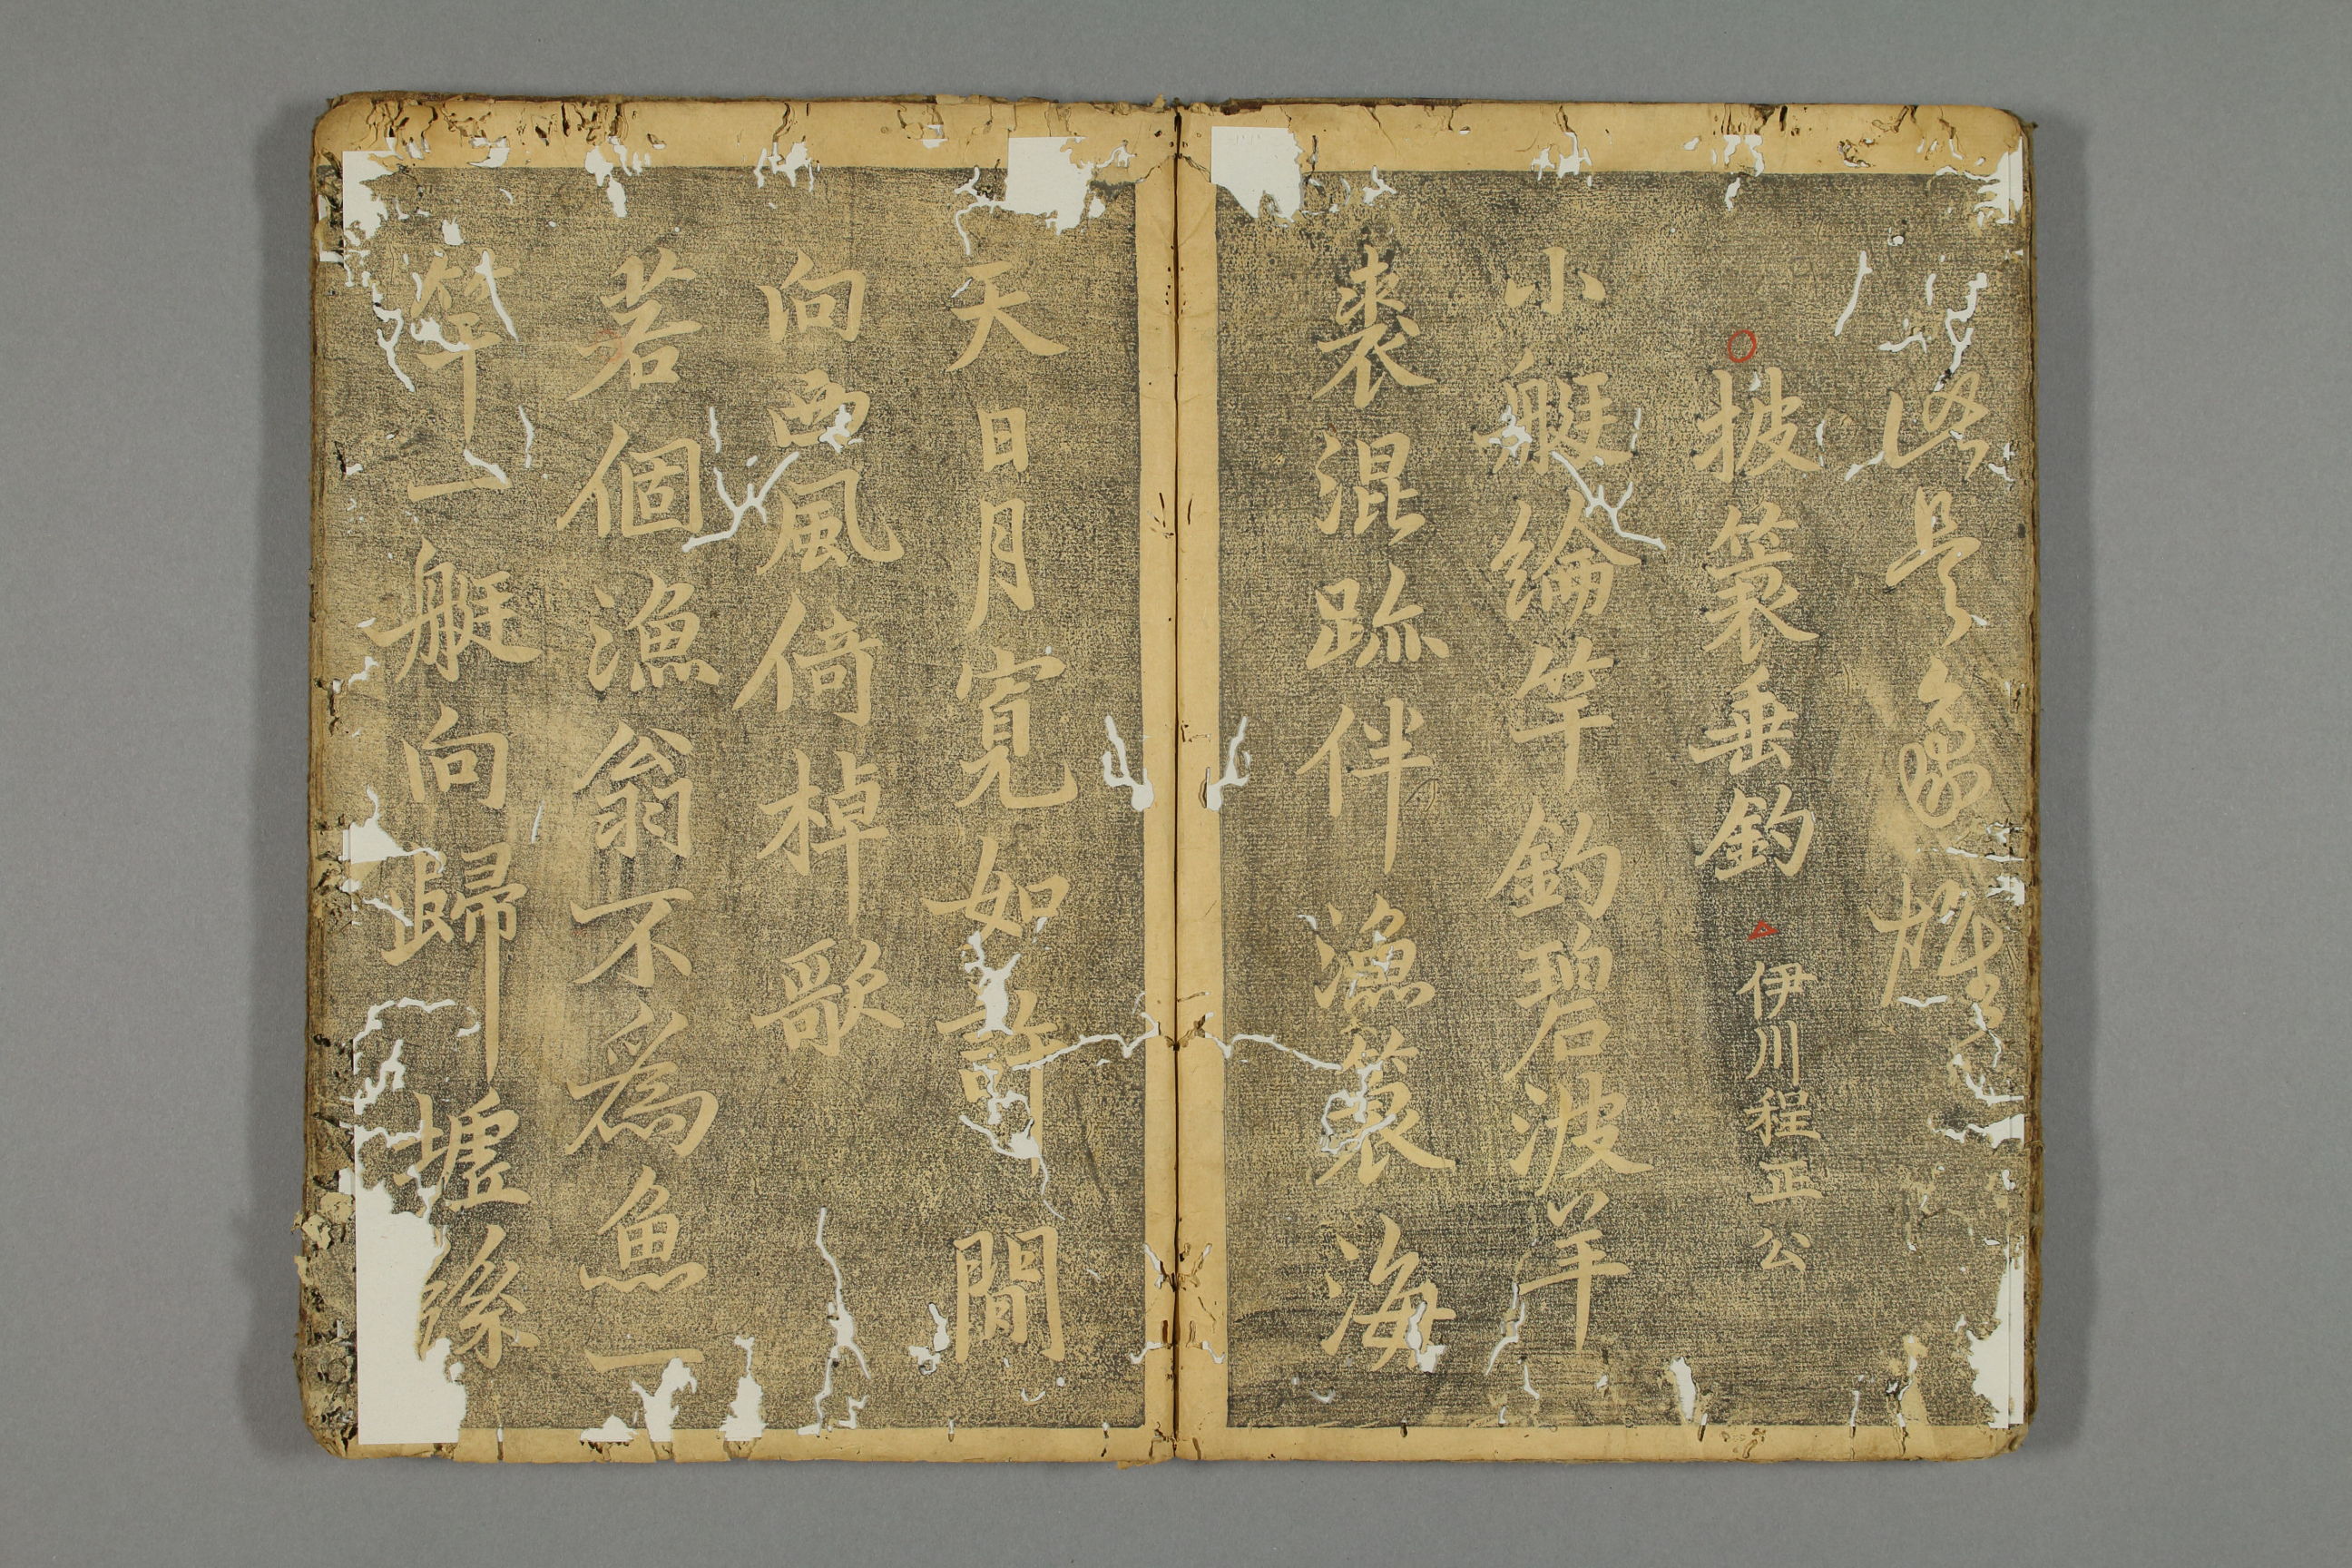 是
披簑垂釣 伊川程正公
小艇綸竿釣碧波羊
裘混跡伴漁簑海
天日月寬如許間
向西風倚棹歌
若個漁翁不為魚一
竿一艇向歸墟絲